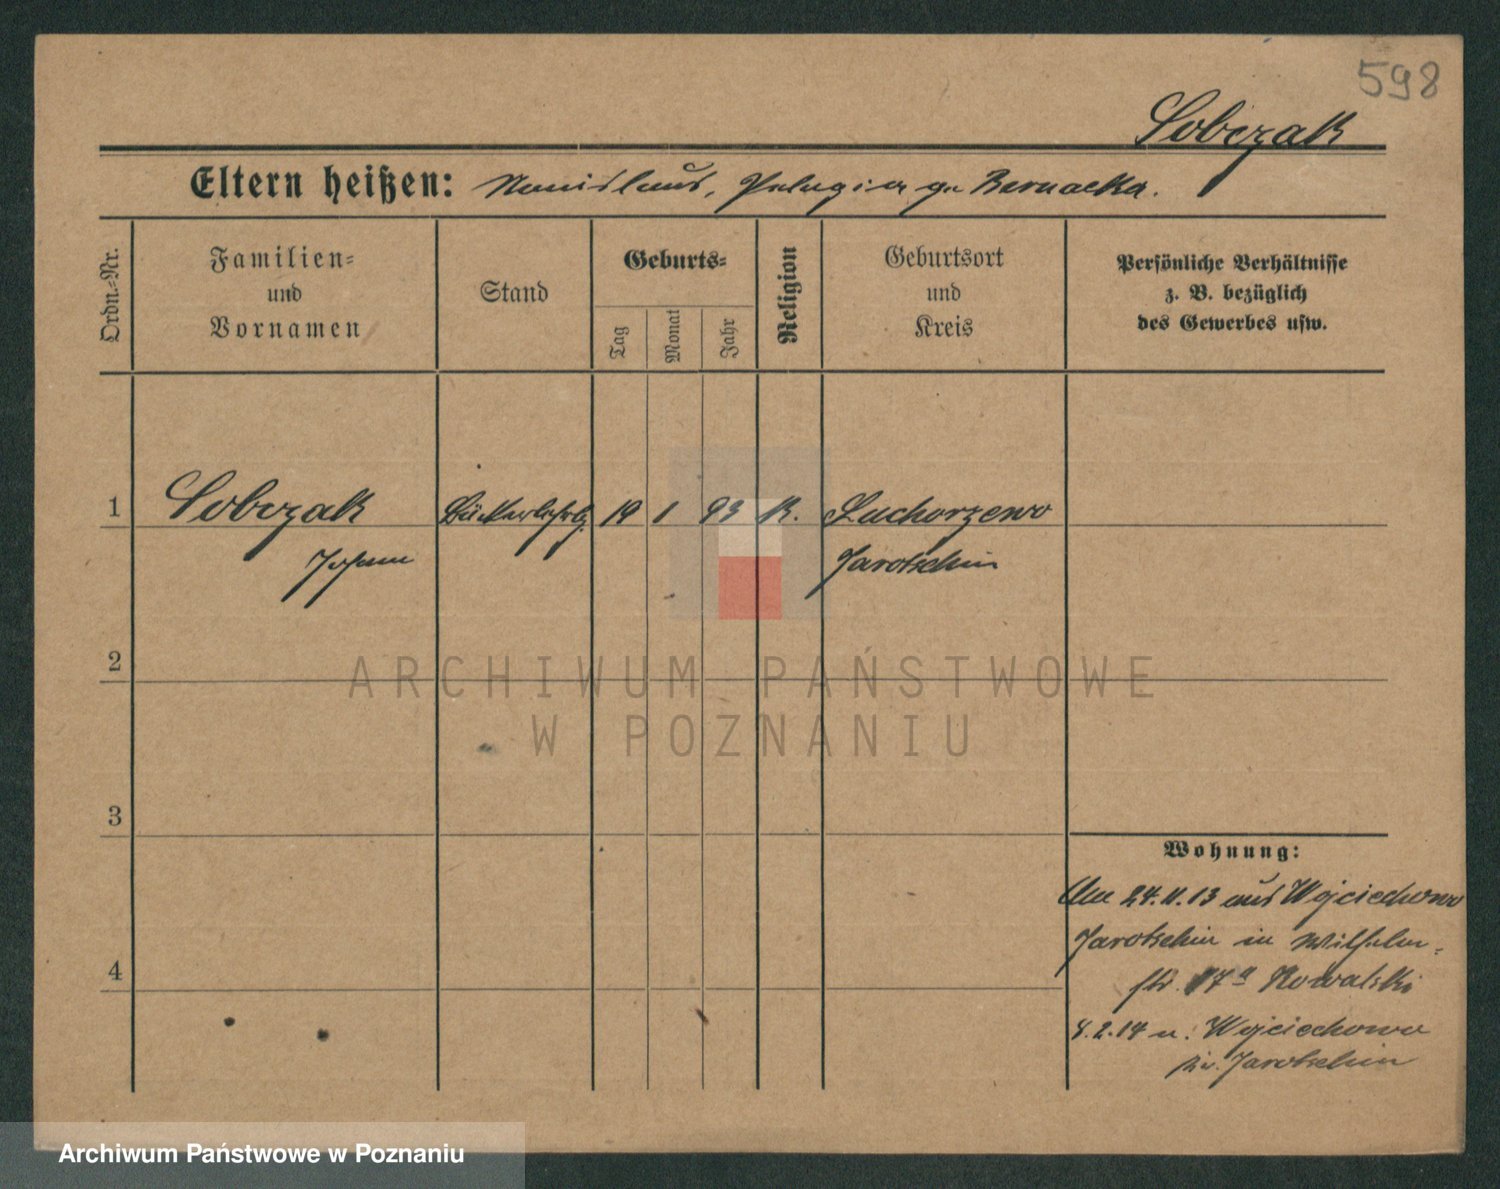 598
Sobczak
Eltern heißen: Stanislaus, Pelagia ge Bernacka.
Ordn.-Nr.
Familien-
und
Vornamen
Stand
Geburts-
Tag
Monat
Jahr
Religion
Geburtsort
und
Kreis
Persönliche Verhältnisse
z. B. bezüglich
des Gewerbes usw.
1 Sobczak Bäckerlehrlg. 19 1 93 K. Luchorzewo
Johann Jarotschin
2
ARCHIWUM PAŃSTWOWE
W POZNANIU
3
Wohnung:
Am 24.11.13 aus Wojciechowo
Jarotschin in Wilhelm-
str. 17a Kowalski
4
8.2.14 n. Wojciechowo
Kr. Jarotschin
Archiwum Państwowe w Poznaniu